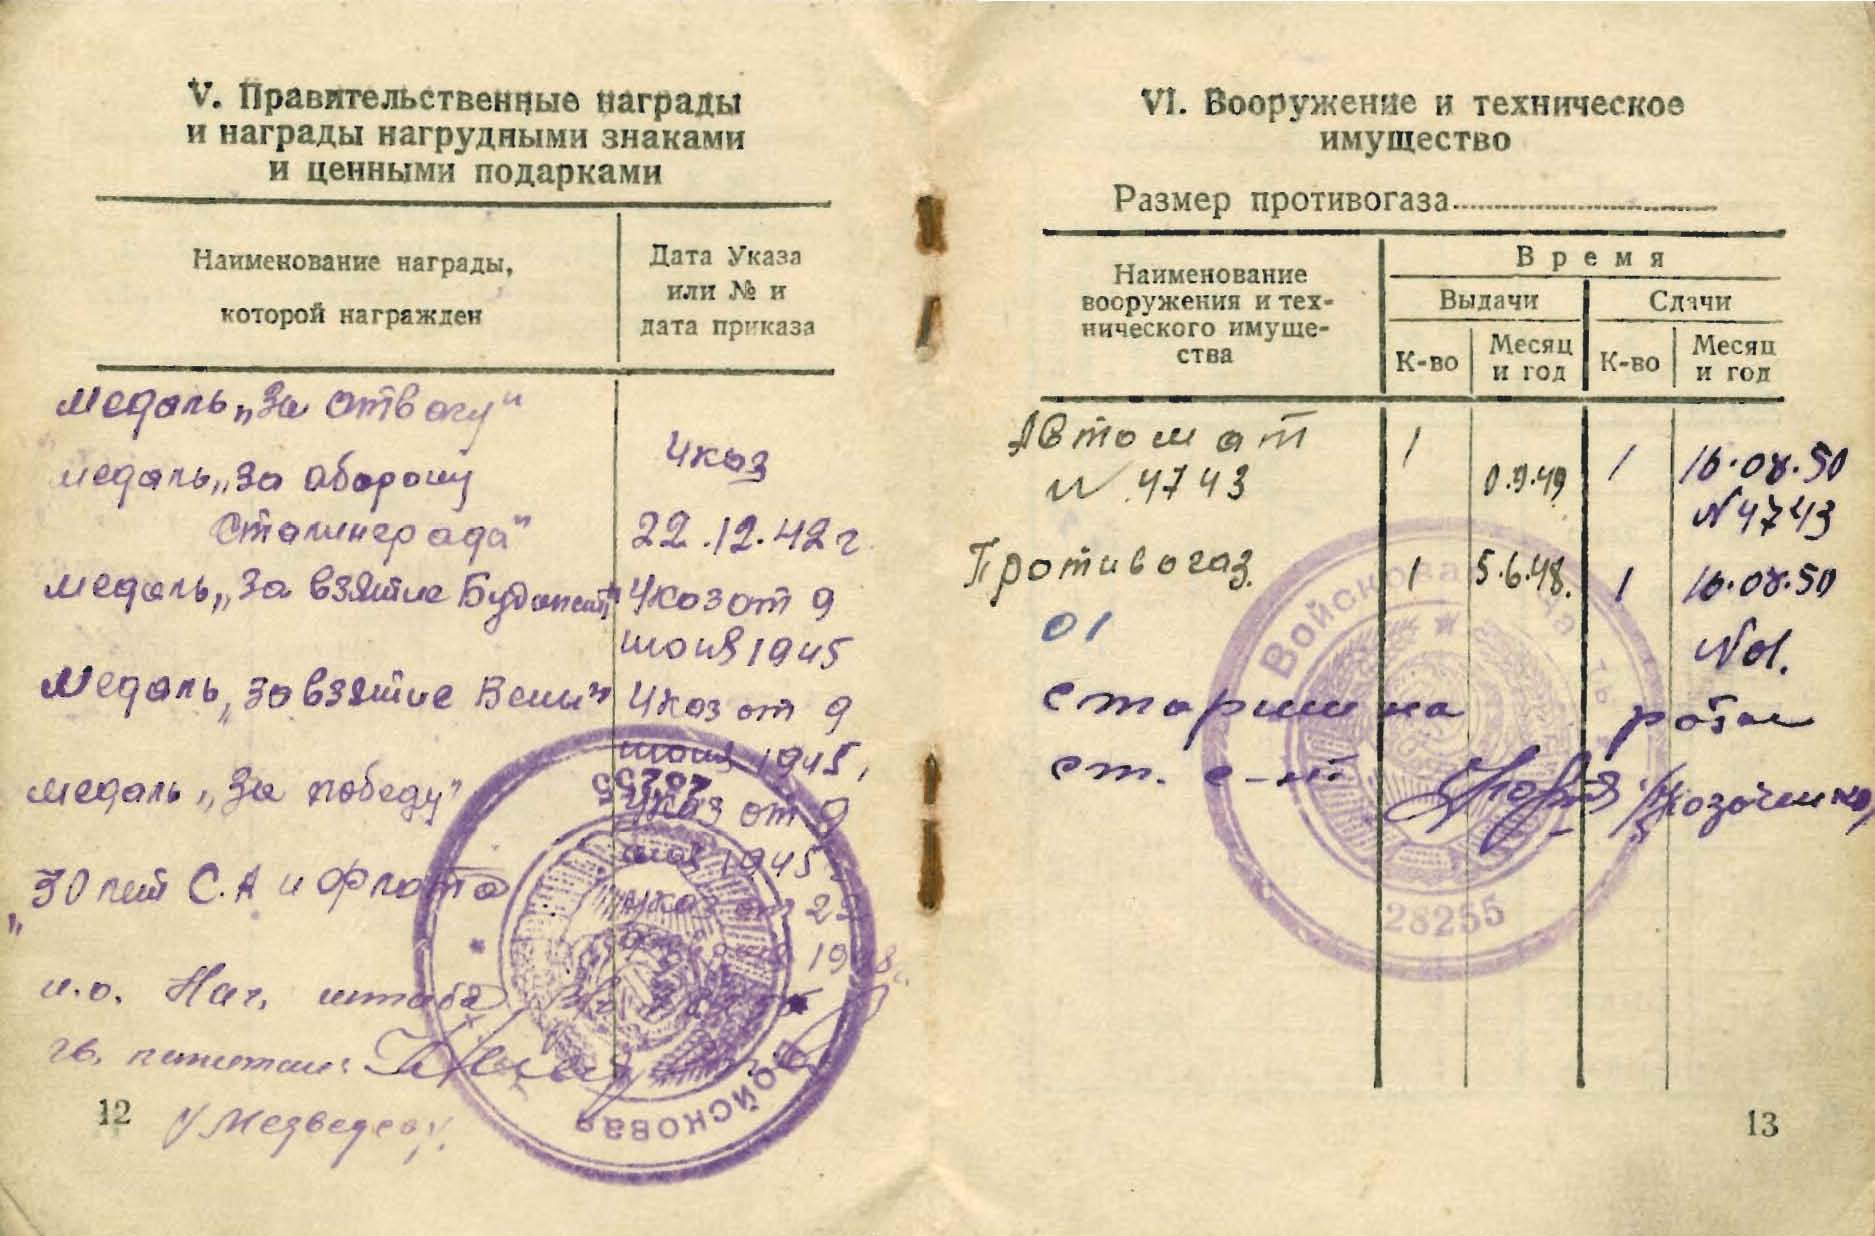 V. Правительственные награды
и награды нагрудными знаками
и ценными подарками
Наименование награды,
которой награжден
Дата Указа
или № и
дата приказа
Медаль „За отвагу"
медаль „За оборону
Указ
Сталинграда"
22.12.42 г
медаль „За взятие Будапешт"
Указ от 9
июня 1945
Медаль „За взятие Вены"
Указ от 9
июня 1945,
медаль „За победу"
Указ от 9
мая 1945
„30 лет С.А и Флота
указ от 22
и.о. Нач. штаба
гв. капитан:
/Медведев/.
12
28255
Войсковая
VI. Вооружение и техническое
имущество
Размер противогаза
Наименование
вооружения и тех-
нического имуще-
ства
Время
Выдачи
Сдачи
К-во
Месяц
и год
К-во
Месяц
и год
Автомат 1 1 16.08.50
N 4743 0.9.49 N4743
Противогаз 1 5.6.48. 1 16.08.50
01 N01.
старшина роты
ст. с-нт /Козаченко/
Войсковая
28255
13